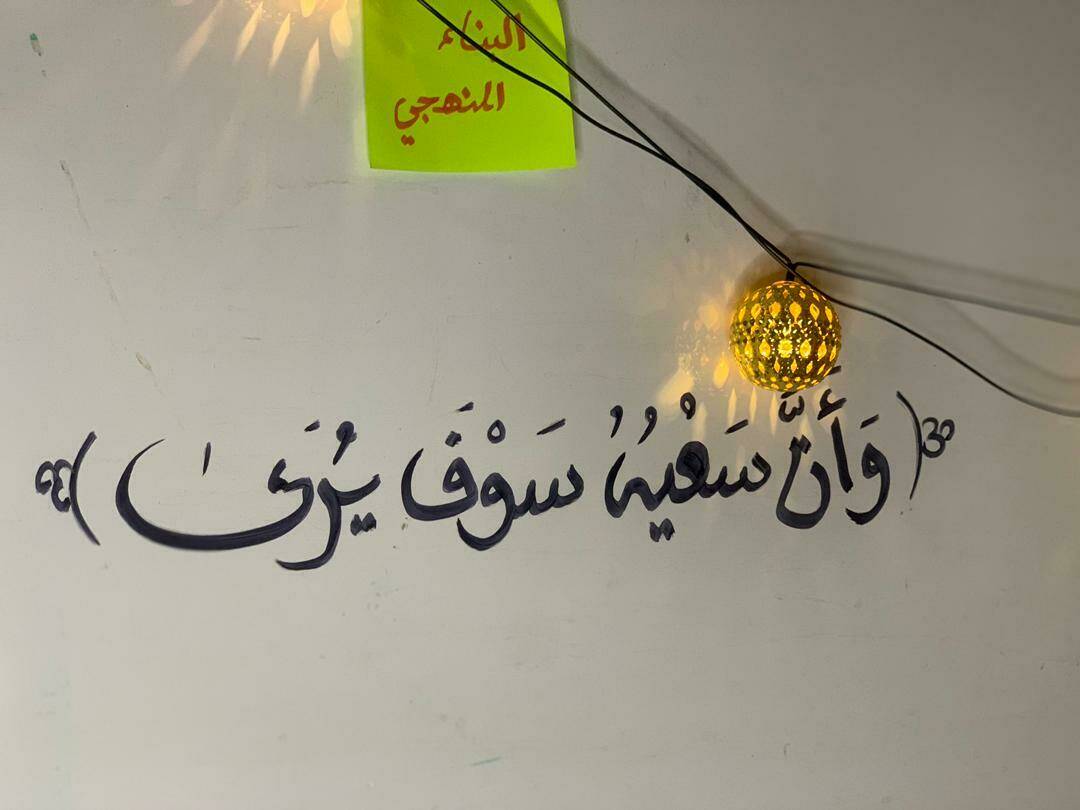 البناء
المنهجي
(وَأَنَّ سَعْيَهُ سَوْفَ يُرَىٰ)